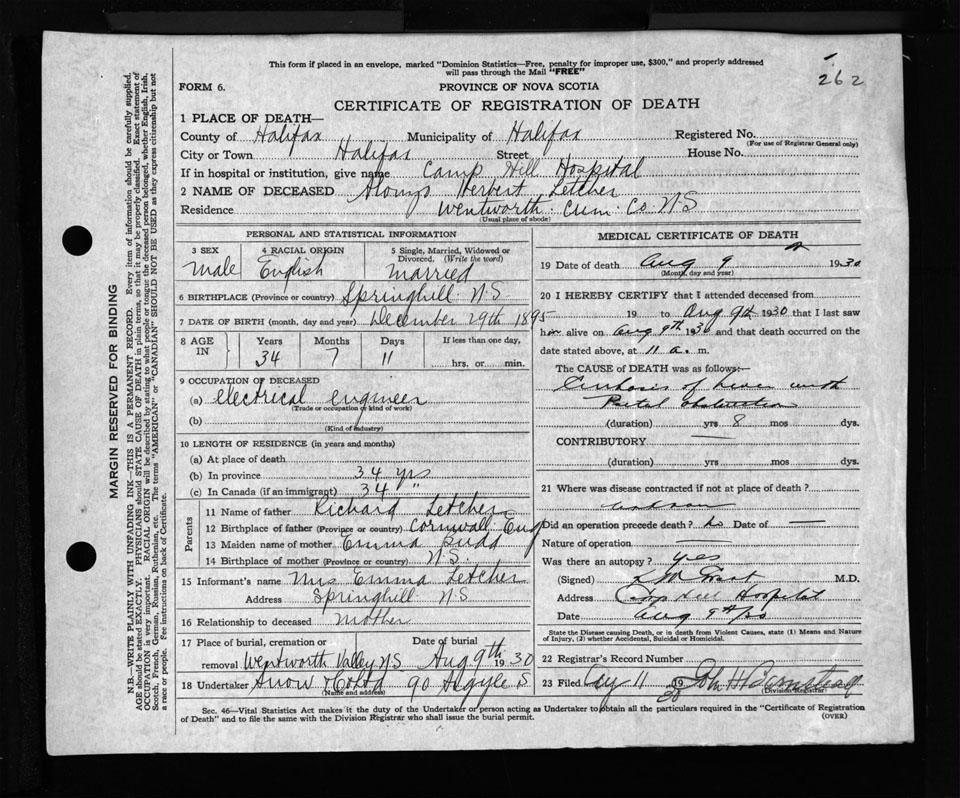 This form if placed in an envelope, marked "Dominion Statistics—Free, penalty for improper use, $300," and properly addressed
will pass through the Mail "FREE"
262
FORM 6.
PROVINCE OF NOVA SCOTIA
CERTIFICATE OF REGISTRATION OF DEATH
1 PLACE OF DEATH—
County of Halifax Municipality of Halifax Registered No.
(For use of Registrar General only)
City or Town Halifax Street House No.
If in hospital or institution, give name Camp Hill Hospital
2 NAME OF DECEASED Alonzo Herbert Letcher
Residence Wentworth Cum. Co. N.S
(Usual place of abode)
PERSONAL AND STATISTICAL INFORMATION
3 SEX 4 RACIAL ORIGIN 5 Single, Married, Widowed or
Divorced. (Write the word)
Male English Married
6 BIRTHPLACE (Province or country) Springhill N.S
7 DATE OF BIRTH (month, day and year) December 29th 1895
8 AGE IN Years Months Days If less than one day,
34 7 11 hrs. or min.
9 OCCUPATION OF DECEASED
(a) Electrical engineer
(Trade or occupation or kind of work)
(b)
(Kind of industry)
10 LENGTH OF RESIDENCE (in years and months)
(a) At place of death
(b) In province 34 yrs
(c) In Canada (if an immigrant) 34 "
Parents
11 Name of father Richard Letcher
12 Birthplace of father (Province or country) Cornwall Eng
13 Maiden name of mother Emma
14 Birthplace of mother (Province or country) N.S.
15 Informant's name Mrs Emma Letcher
Address Springhill N.S
16 Relationship to deceased Mother
17 Place of burial, cremation or Date of burial
removal Wentworth Valley N.S Aug 9th 1930
18 Undertaker Snow & Co Ltd 90 Argyle S
(Name and address)
MEDICAL CERTIFICATE OF DEATH
19 Date of death Aug 9 1930
(Month, day and year)
20 I HEREBY CERTIFY that I attended deceased from
19 to Aug 9th 1930 that I last saw
him alive on Aug 9th 1930 and that death occurred on
date stated above, at 11 a. m.
The CAUSE OF DEATH was as follows:—
Cirrhosis of liver with
Portal obstruction
(duration) yrs 8 mos dys.
CONTRIBUTORY —
(duration) yrs mos dys.
21 Where was disease contracted if not at place of death?
Did an operation precede death? No Date of —
Nature of operation —
Was there an autopsy? yes
(Signed) M.D.
Address Camp Hill Hospital
Date Aug 9th/30
State the Disease causing Death, or in death from Violent Causes, state (1) Means and Nature
of Injury, (2) whether Accidental, Suicidal or Homicidal.
22 Registrar's Record Number
23 Filed Aug 11 1930 John H
(Division Registrar)
Sec. 46—Vital Statistics Act makes it the duty of the Undertaker or person acting as Undertaker to obtain all the particulars required in the "Certificate of Registration
of Death" and to file the same with the Division Registrar who shall issue the burial permit.
(OVER)
MARGIN RESERVED FOR BINDING
N.B.—WRITE PLAINLY WITH UNFADING INK—THIS IS A PERMANENT RECORD. Every item of information should be carefully supplied.
AGE should be stated EXACTLY. PHYSICIANS should STATE CAUSE OF DEATH in plain terms, so that it may be properly classified. Exact statement of
OCCUPATION is very important. RACIAL ORIGIN will be described by stating to what people or tongue the deceased person belonged, whether English, Irish,
Scotch, French, German, Russian, Ruthenian, etc. The terms "AMERICAN" or "CANADIAN" SHOULD NOT BE USED as they express citizenship but not
a race or people. Fee instructions on back of Certificate.